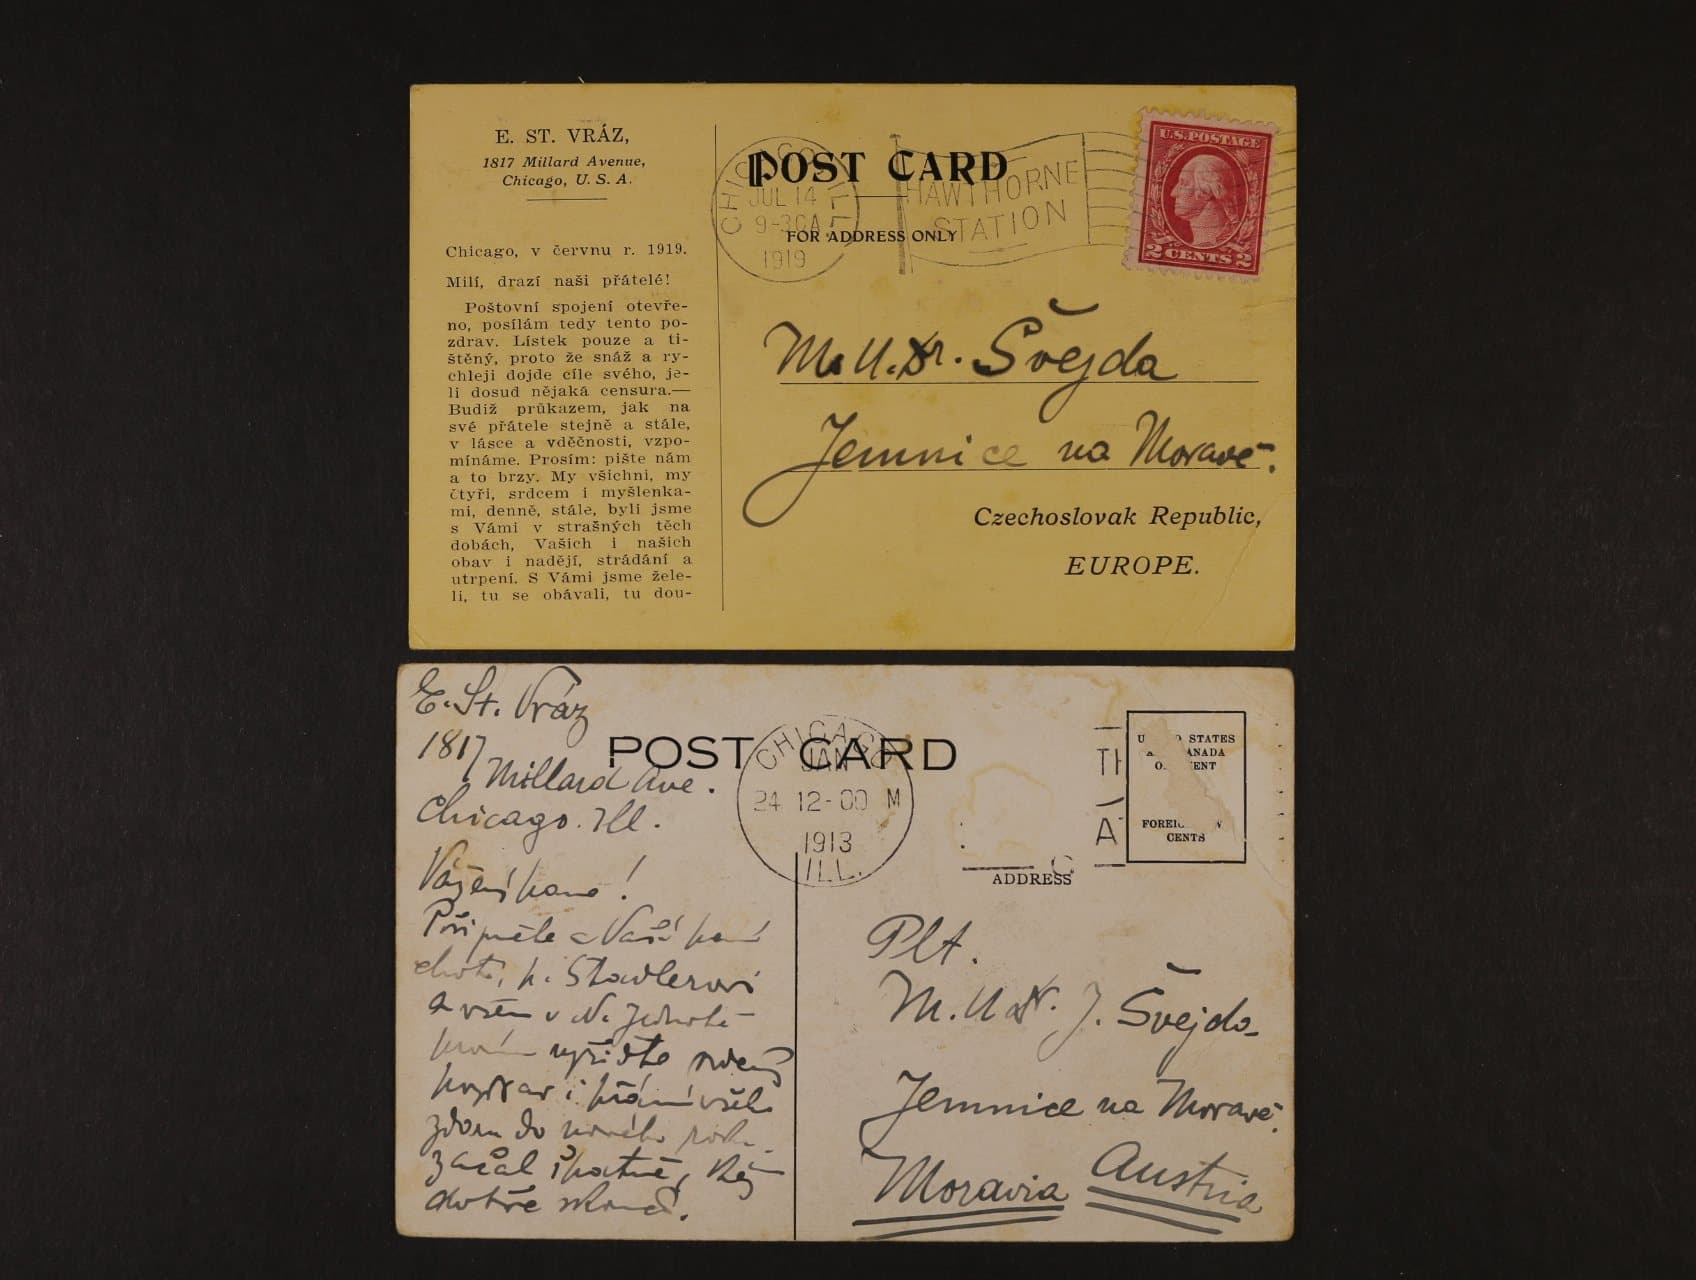 E. ST. VRÁZ,
1817 Millard Avenue,
Chicago, U. S. A.
Chicago, v červnu r. 1919.
Milí, drazí naši přátelé!
Poštovní spojení otevře-
no, posílám tedy tento po-
zdrav. Lístek pouze a ti-
štěný, proto že snáž a ry-
chleji dojde cíle svého, je-
li dosud nějaká censura.—
Budiž průkazem, jak na
své přátele stejně a stále,
v lásce a vděčnosti, vzpo-
mínáme. Prosím: pište nám
a to brzy. My všichni, my
čtyři, srdcem i myšlenka-
mi, denně, stále, byli jsme
s Vámi v strašných těch
dobách, Vašich i našich
obav i nadějí, strádání a
utrpení. S Vámi jsme žele-
li, tu se obávali, tu dou-
POST CARD
FOR ADDRESS ONLY
CHICAGO, ILL.
JUL 14
9-30A
1919
HAWTHORNE
STATION
U.S. POSTAGE
2 CENTS 2
M.U.Dr. Švejda
Jemnice na Moravě.
Czechoslovak Republic,
EUROPE.
E. St. Vráz
1817
Millard Ave.
Chicago. Ill.
Vážený pane!
Přijměte a Vaší paní
choti, p. Stadlerovi
a všem v N. Jednotě
vyřiďte srdečný
pozdrav i přání všeho
zdaru do nového roku.
začal špatně,
dobře skončí.
POST CARD
CHICAGO
JAN
24 12-00 M
1913
ILL.
TH
A
STATES
CENTS
ADDRESS
Plt.
M.U.Dr. J. Švejda
Jemnice na Moravě.
Moravia Austria